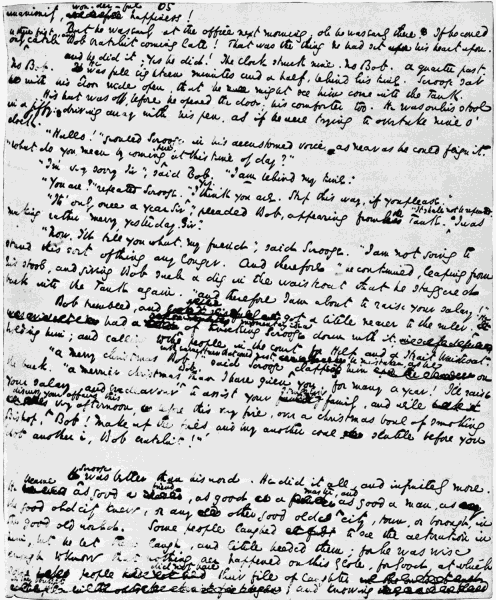 unanimity, won-der-ful happiness!
But he was early at the office next morning. oh he was early there. If he could
only catch Bob Cratchit coming late! That was the thing he had set upon his heart upon.
and he did it; yes he did! The clock struck nine. No Bob. a quarter past.
No Bob. He was full eighteen minutes and a half, behind his time. Scrooge sat
with his door wide open, that he might see him come into the Tank.
His hat was off before he opened the door; his comforter too. He was on his stool
in a jiffy; driving away with his pen, as if he were trying to overtake nine o'
clock.
"Hallo!" growled Scrooge in his accustomed voice, as near as he could feign it.
"What do you mean by coming here at this time of day?"
"I'm very sorry Sir," said Bob. "I am behind my time."
"You are?" repeated Scrooge. "Yes. I think you are. Step this way, if you please."
"It's only once a year Sir," pleaded Bob, appearing from the Tank. "It shall not be repeated. I was
making rather merry, yesterday, Sir."
"Now, I'll tell you what, my friend", said Scrooge. "I am not going to
stand this sort of thing any longer. And therefore" he continued, leaping from
his stool, and giving Bob such a dig in the waistcoat that he staggered
back into the Tank again. "and therefore I am about to raise your salary!"
Bob trembled, and got a little nearer to the ruler.
had a of knocking Scrooge down with it;
holding him; and calling people in the court for help and a Strait Waistcoat
"a merry christmas Bob", said Scrooge as he clapped him on
the back. "a merrier christmas Bob than I have given you, for many a year! I'll raise
Your salary, and endeavour to assist your family, and we'll
discuss your affairs this very afternoon, over a christmas bowl of smoking
Bishop, Bob! make up the fires and buy another coal scuttle before you
dot another i, Bob Cratchit!"
Scrooge was better than his word. He did it all, and infinitely more.
He became as good a friend, as good a master, and as good a man, as
the good old city knew, or any other good old city, town, or borough, in
the good old world. Some people laughed to see the alteration in
him, but he let them laugh, and little heeded them; for he was wise
enough to know that nothing ever happened on this Globe, for good, at which
some people did not have their fill of laughter and knowing